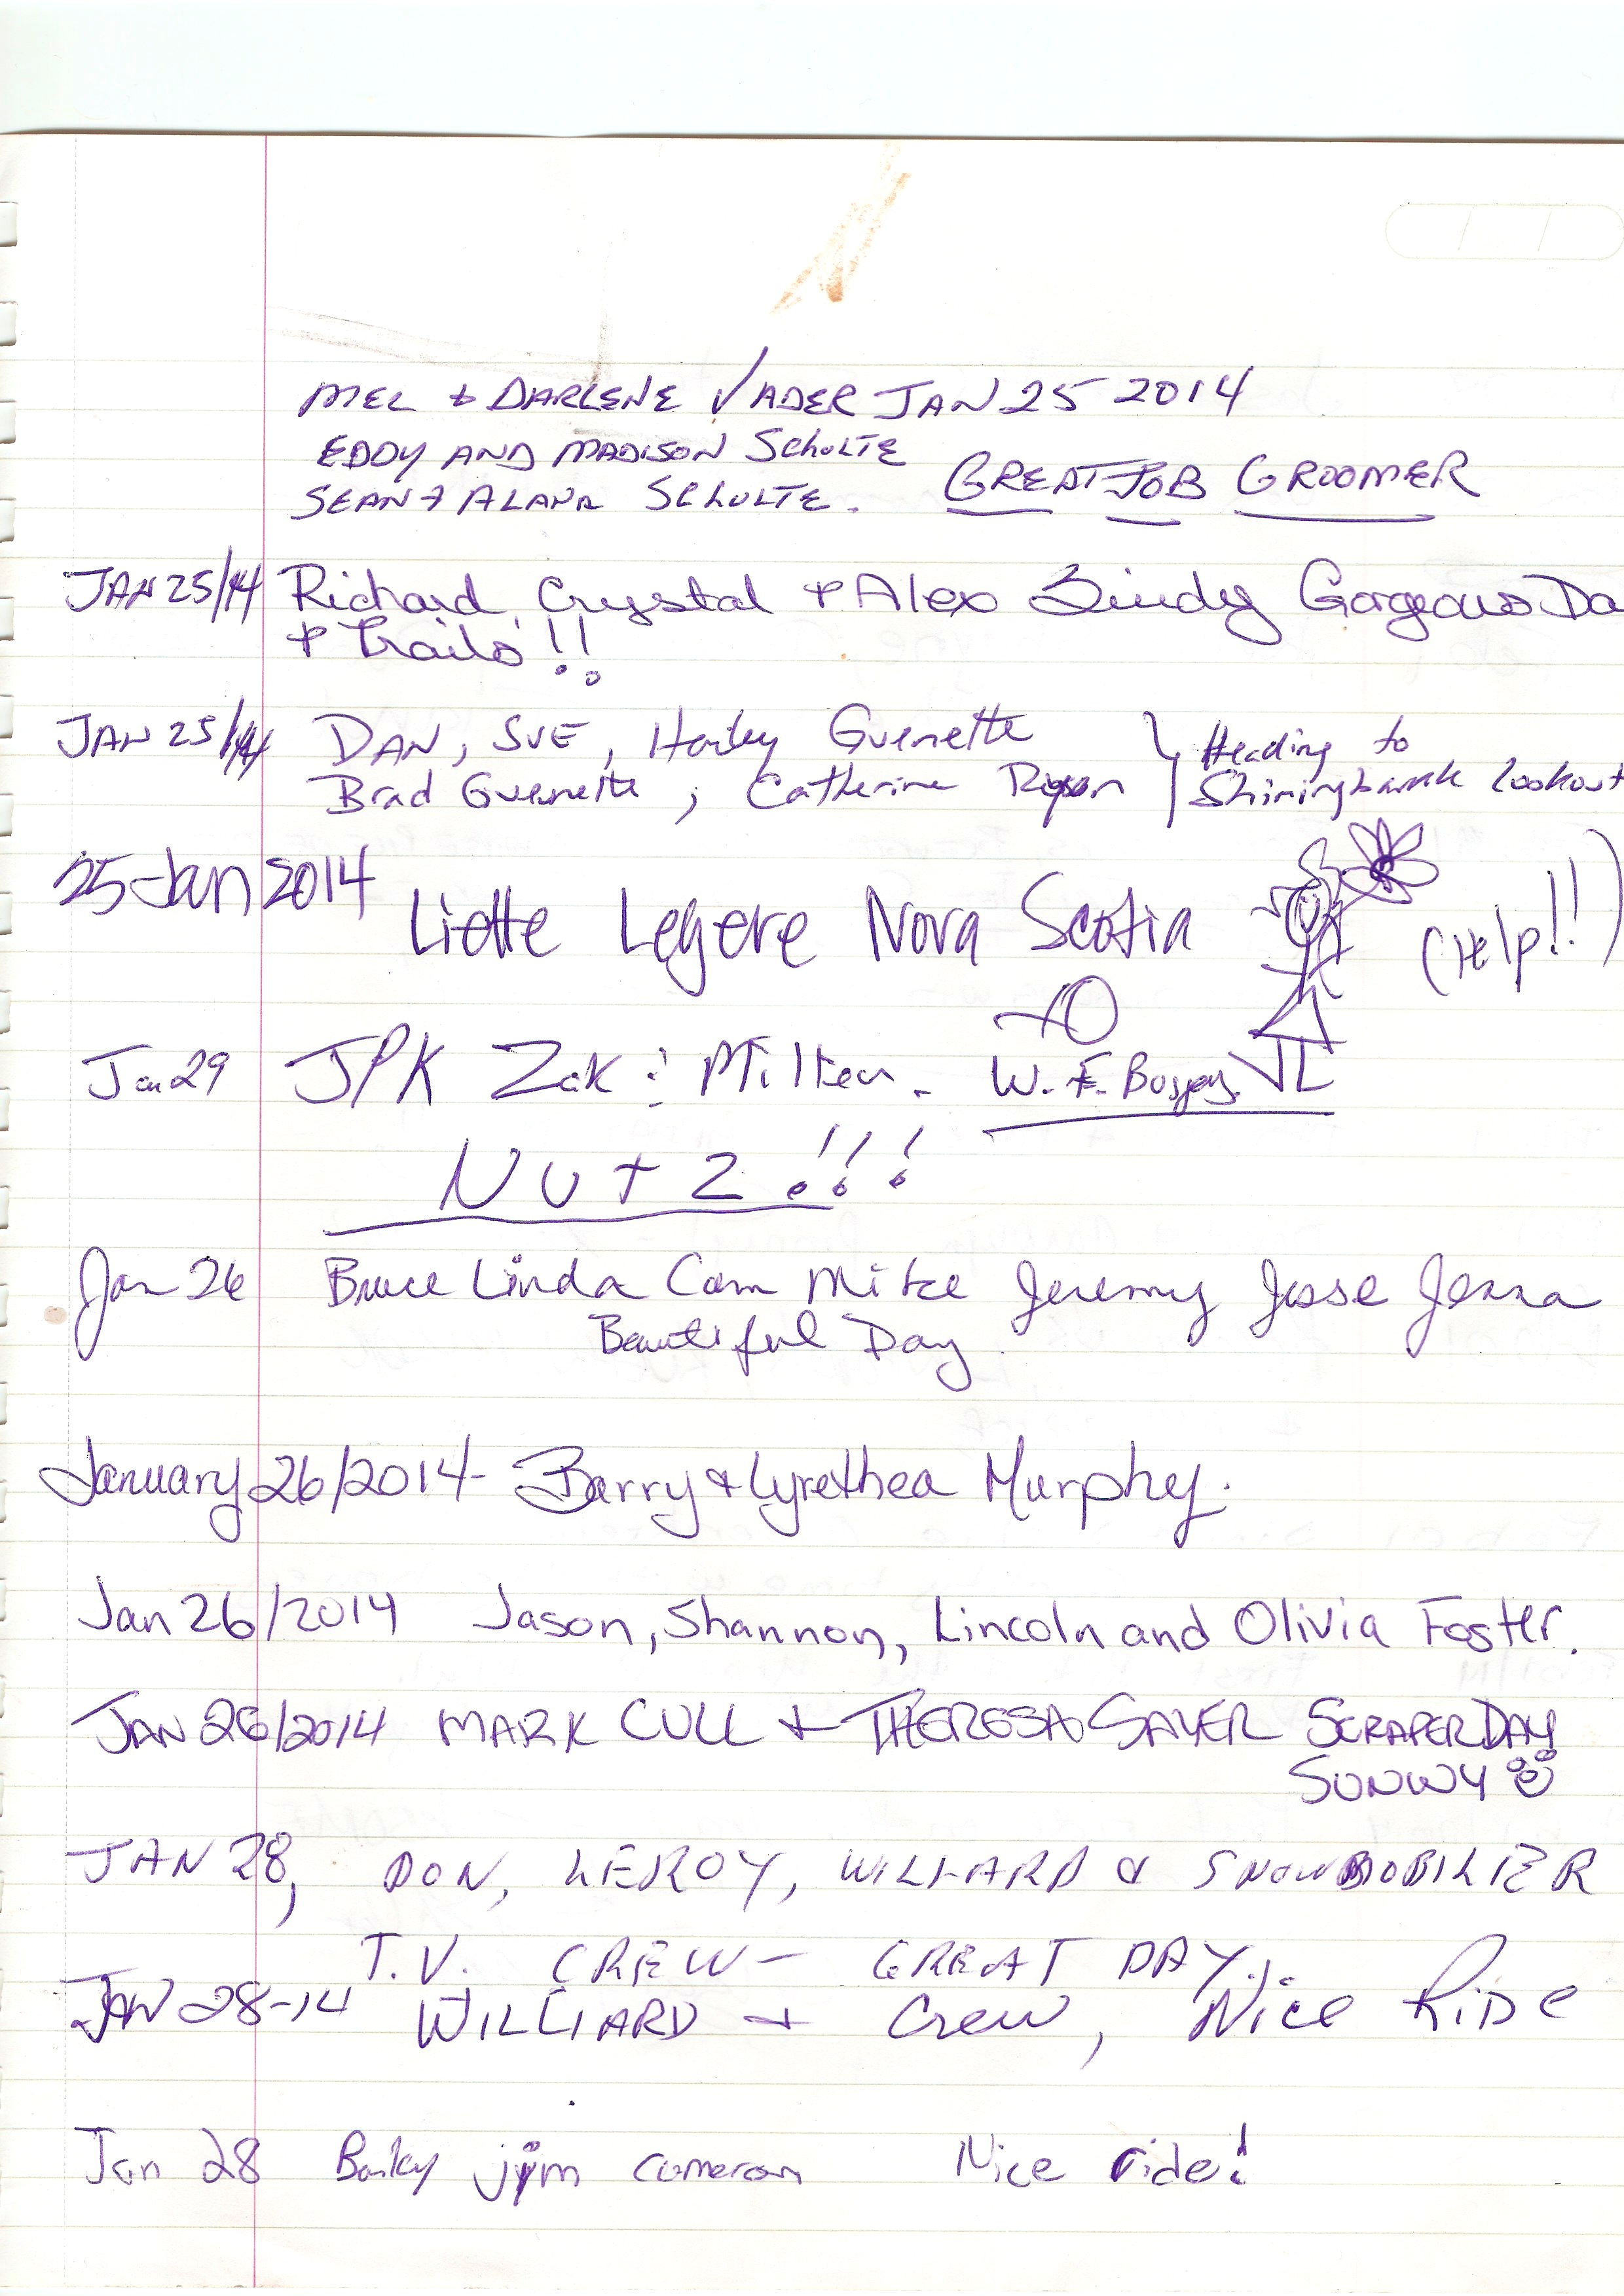 MEL + DARLENE VADER JAN 25 2014
EDDY AND MADISON SCHULTE
SEAN + ALANA SCHULTE. GREAT JOB GROOMER
JAN 25/14 Richard, Crystal + Alex Gorgeous Da
+ Trails!!
JAN 25/14 DAN, SUE, Hailey Guenette } Heading to
Brad Guenette, Catherine } Shiningbank lookout
25-Jan 2014 Liette Legere Nova Scotia (Help!!)
Jan 29 JPK Zak : Milton. W. F.
NUTZ!!!
Jan 26 Bruce Linda Cam Mike Jeremy Jesse Jenna
Beautiful Day
January 26/2014 - Barry + Lyrethea Murphy.
Jan 26/2014 Jason, Shannon, Lincoln and Olivia Foster.
JAN 26/2014 MARK CULL + THERESA SAYER SCRAPER DAY
SUNNY
JAN 28, DON, LEROY, WILLARD & SNOWMOBILER
T.V. CREW - GREAT DAY.
JAN 28-14 WILLIARD + Crew, Nice RiDe
Jan 28 Bailey jim cameron Nice ride!